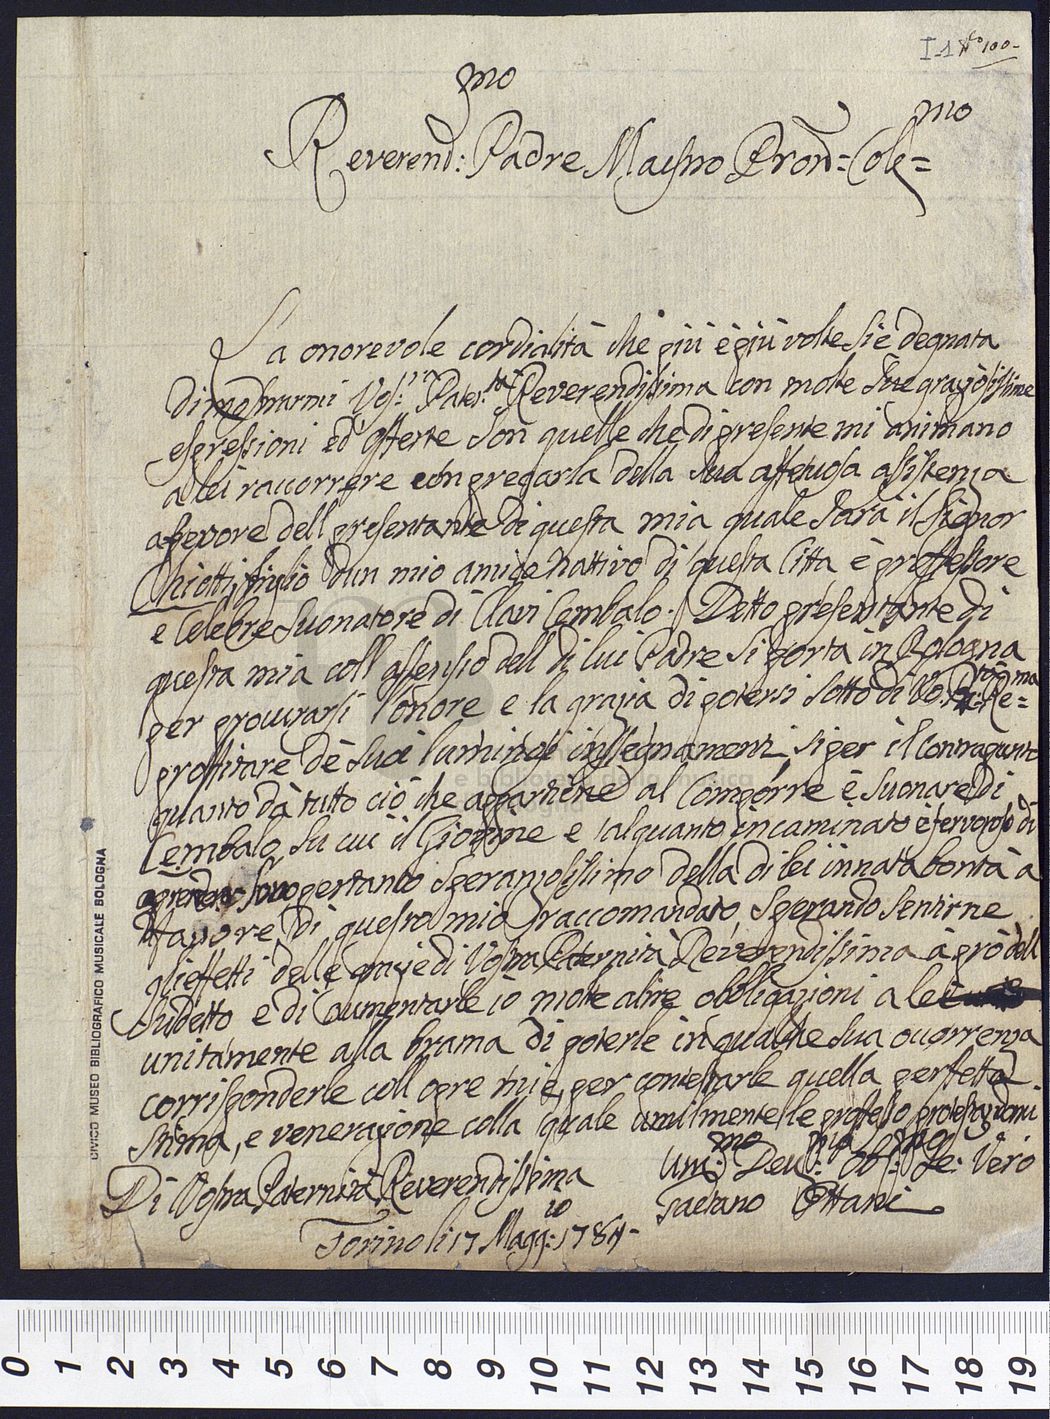 I 1 No 100-
Reverend:mo Padre Maestro Pron= Cole=mo
La onorevole cordialità che più è più volte si è degnata
di mostrarmi Vos:ra Pater:tà Reverendissima con molte sue graziosissime
espressioni ed' offerte son quelle che di presente mi animano
a lei raccorrere con pregarla della sua affetuosa assistenza
a fferore dell presentante di questa mia quale sarà il signor
Chiotti, figlio d'un mio amico nattivo di questa Citta è proffessore
e Celebre suonatore di Clavi Cembalo. Detto presentante di
questa mia coll assensio dell di lui Padre si porta in Bologna
per procurarsi l'onore e la grazia di potersi sotto di Vo. Re=ma
proffitare dè suoi luminosi inssegnamenti si per il Contrapunto
quanto dà tutto ciò che appartiene al Comporre è suonare di
Cembalo su cui il Giovine e alquanto incaminato è fervoroso di
aprendere sono pertanto speranzosissimo della di lei innata bontà a
ffavore di questo mio raccomandato, sperando sentirne
gli effetti delle grazie di Vostra Paternità Reverendissima à prò dell
sudetto e di aumentarle io molte altre obbligazioni a lei
unitamente alla brama di poterle in qualche sua occorrenza
corrisponderle coll opre mie, per contestarle quella perffetta
stima, e venerazione colla quale umilmente le proffesso protestandomi
Di Vostra Paternità Reverendissima
Umi:mo Devo:mo Obb:mo Se: Vero
Gaetano Ottani
Torino li 17 Magg:io 1784-
CIVICO MUSEO BIBLIOGRAFICO MUSICALE BOLOGNA
e biblioteca della musica
0 1 2 3 4 5 6 7 8 9 10 11 12 13 14 15 16 17 18 19